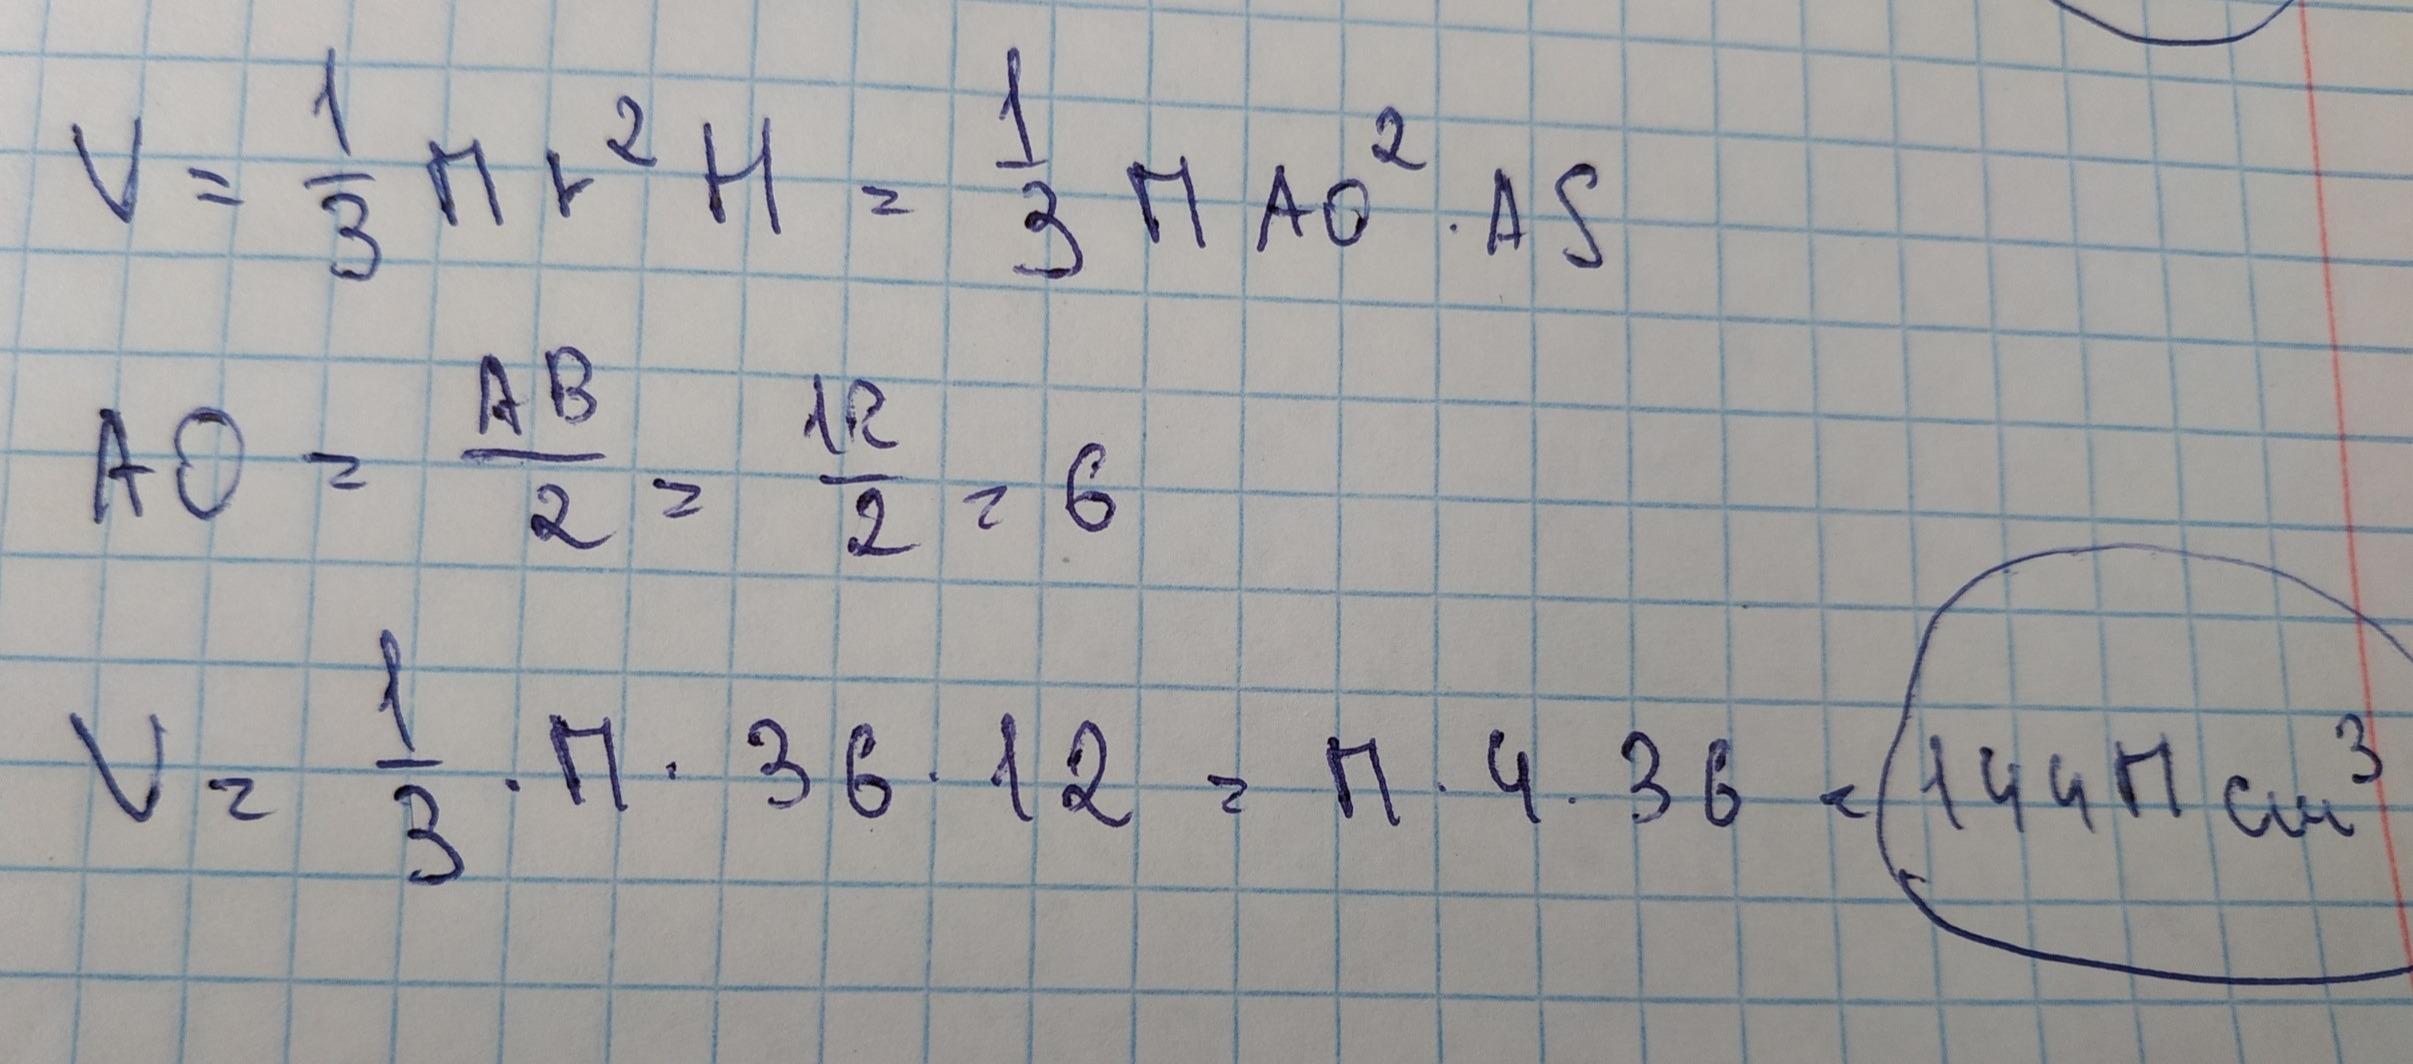 V = 1/3 П r² H = 1/3 П AO² · AS
AO = AB/2 = 12/2 = 6
V = 1/3 · П · 36 · 12 = П · 4 · 36 = 144П см³